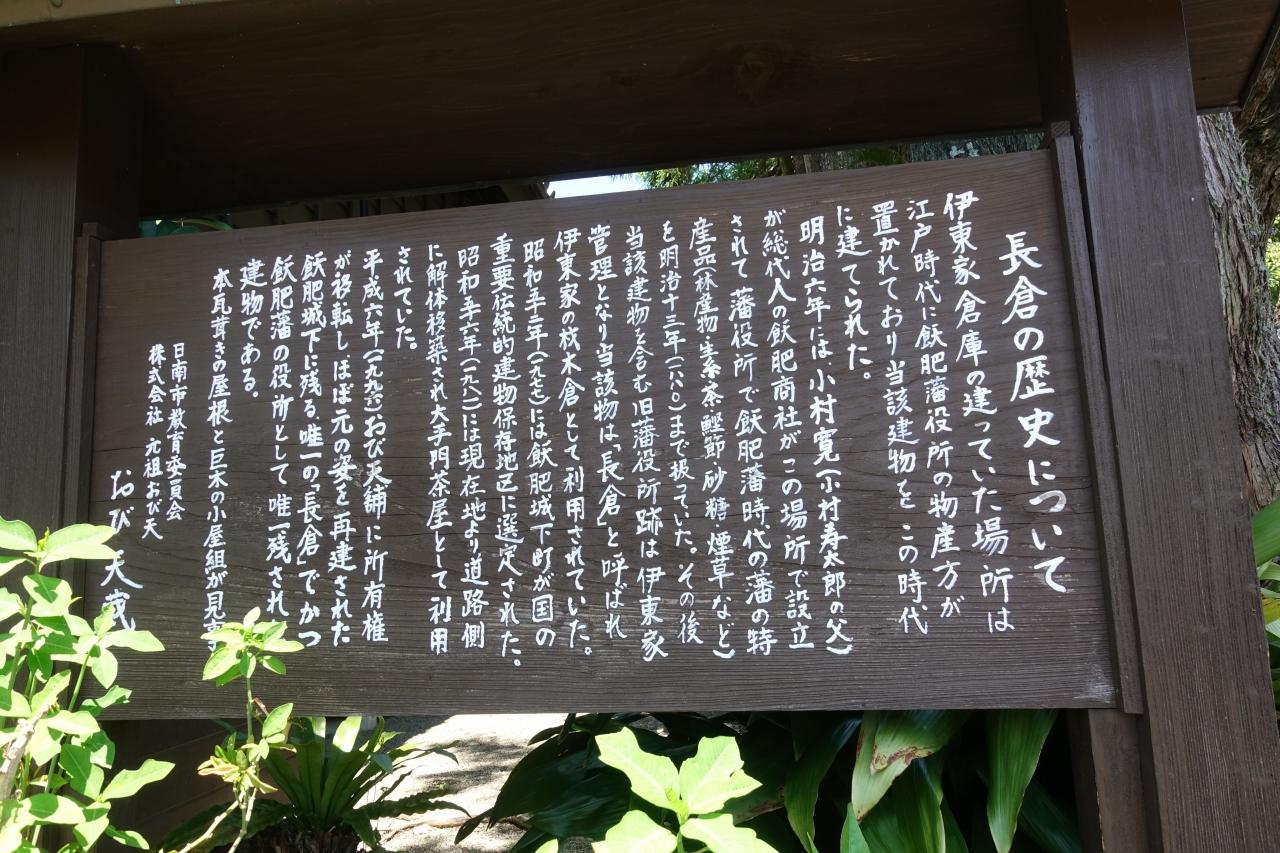 長倉の歴史について
伊東家倉庫の建っていた場所は
江戸時代に飫肥藩役所の物産方が
置かれており当該建物を この時代
に建てられた。
明治六年には小村寛(小村寿太郎の父)
が総代人の飫肥商社がこの場所で設立
されて 藩役所で飫肥藩時代の藩の特
産品(林産物・生糸・茶・鰹節・砂糖・煙草など)
を明治十三年(一八八〇)まで扱っていた。その後
当該建物を含む旧藩役所跡は 伊東家
管理となり当該物は「長倉」と呼ばれ
伊東家の材木倉として利用されていた。
昭和五十二年(一九七七)には飫肥城下町が国の
重要伝統的建物保存地区に選定された。
昭和五十六年(一九八一)には現在地より道路側
に解体移築され大手門茶屋として利用
されていた。
平成六年(一九九六)おび天舗に所有権
が移転しほぼ元の姿を再建された
飫肥城下に残る、唯一の「長倉」でかつ
飫肥藩の役所として唯一残され
建物である。
本瓦葺きの屋根と巨木の小屋組が見事
日南市教育委員会
株式会社 元祖おび天
おび天蔵